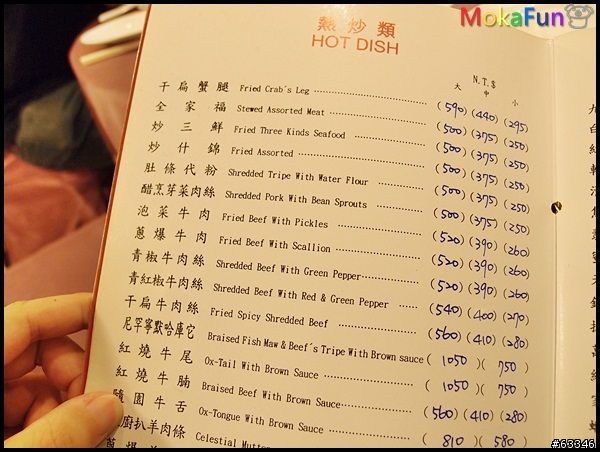 MokaFun
熱炒類
HOT DISH
N.T.$
大 中 小
干扁蟹腿 Fried Crab's Leg (590) (440) (295)
全家福 Stewed Assorted Meat (500) (375) (250)
炒三鮮 Fried Three Kinds Seafood (500) (375) (250)
炒什錦 Fried Assorted (500) (375) (250)
肚條代粉 Shredded Tripe With Water Flour (500) (375) (250)
醋烹芽菜肉絲 Shredded Pork With Bean Sprouts (500) (375) (250)
泡菜牛肉 Fried Beef With Pickles (520) (390) (260)
蔥爆牛肉 Fried Beef With Scallion (520) (390) (260)
青椒牛肉絲 Shredded Beef With Green Pepper (520) (390) (260)
青紅椒牛肉絲 Shredded Beef With Red & Green Pepper (540) (400) (270)
干扁牛肉絲 Fried Spicy Shredded Beef (560) (410) (280)
尼罕寧默哈庫它 Braised Fish Maw & Beef's Tripe With Brown sauce (1050) (750)
紅燒牛尾 Ox-Tail With Brown Sauce (1050) (750)
紅燒牛腩 Braised Beef With Brown Sauce (560) (410) (280)
隨園牛舌 Ox-Tongue With Brown Sauce (810) (580)
廚扒羊肉條 Celestial
#63346